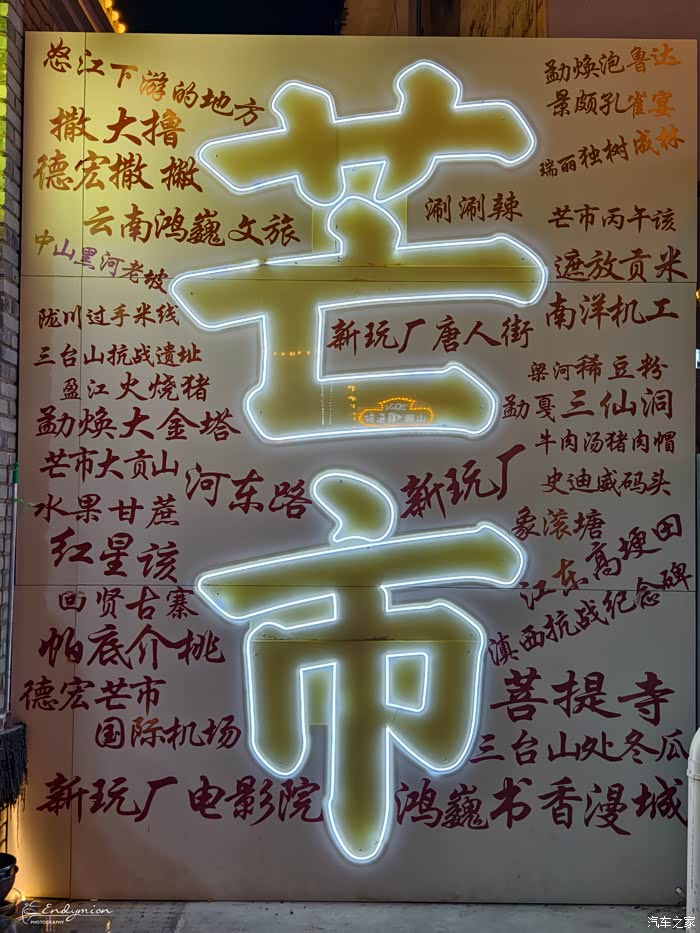 怒江下游的地方
勐焕泡鲁达
撒大撸
景颇孔雀宴
德宏撒撇
瑞丽独树成林
云南鸿巍文旅
涮涮辣
芒市丙午该
中山黑河老坡
遮放贡米
陇川过手米线
新玩厂唐人街
南洋机工
三台山抗战遗址
梁河稀豆粉
盈江火烧猪
勐戛三仙洞
勐焕大金塔
牛肉汤猪肉帽
芒市大贡山
河东路
新玩厂
史迪威码头
水果甘蔗
象滚塘
红星该
江东高埂田
回贤古寨
滇西抗战纪念碑
帕底介桃
德宏芒市
国际机场
菩提寺
三台山处冬瓜
新玩厂电影院
鸿巍书香漫城
芒市
Endymion
PHOTOGRAPHY
汽车之家